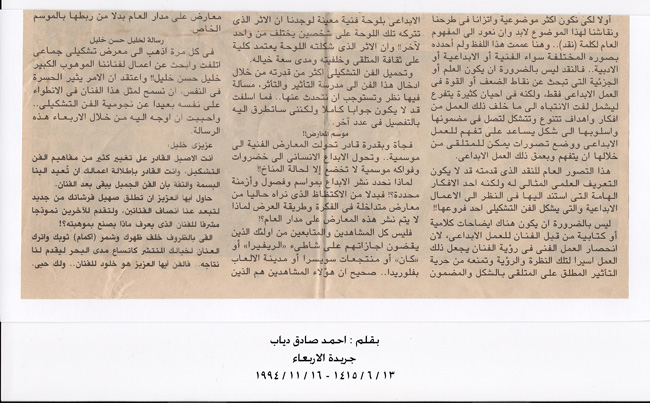 أولا لكى نكون أكثر موضوعية واتزانا فى طرحنا
ونقاشنا لهذا الموضوع لابد وان نعود الى المفهوم
العام لكلمة (نقد).. وهنا عممت هذا اللفظ ولم أحدده
بصوره المختلفة سواء الفنية أو الابداعية أو
الادبية.. فالنقد ليس بالضرورة ان يكون العلم أو
الجزئية التى تبحث عن نقاط الضعف أو القوة فى
العمل الابداعى فقط، ولكنه فى احيان كثيرة يتفرع
ليشمل لفت الانتباه الى ما خلف ذلك العمل من
افكار وأهداف تتنوع وتتشكل لتصل فى مضمونها
واسلوبها الى شكل يساعد على تفهم للعمل
الابداعى ووضع تصورات يمكن للمتلقى من
خلالها ان يتفهم وبعمق ذلك العمل الابداعى.
هذا التصور العام للنقد الذى قدمته قد لا يكون
التعريف العلمى المثالى له ولكنه احد الافكار
الهامة التى استند اليها فى النظر الى الاعمال
الابداعية والتى يشكل الفن التشكيلى احد فروعها!!
ليس بالضرورة ان يكون هناك ايضاحات كلامية
أو كتابية من قبل الفنان للعمل الابداعى، لان
انحصار العمل الفنى فى رؤية الفنان يجعل ذلك
العمل اسيرا لتلك النظرة والرؤية وتمنعه من حرية
التأثير المطلق على المتلقى بالشكل والمضمون
الابداعى بلوحة فنية معينة لوجدنا ان الاثر الذى
تتركه تلك اللوحة على شخصين يختلف من واحد
لآخر!! وان الاثر الذى شكلته اللوحة يعتمد كلية
على ثقافة المتلقى وخلفيته ومدى سعة خياله.
وتحميل الفن التشكيلى أكثر من قدرته من خلال
ادخال هذا الفن الى مدرسة التأثير والتأثر، مسألة
فيها نظر وتستوجب ان نتحدث عنها.. فما اسلفت
قد لا يكون جوابا كاملا ولكننى ساتطرق اليه
بالتفصيل فى عدد آخر.
موسم المعارض!!
فجأة وبقدرة قادر تحولت المعارض الفنية الى
موسمية.. وتحول الابداع الانسانى الى خضروات
وفواكه موسمية لا تخضع إلا لحالة المناخ!!
لماذا نحدد نشر الابداع بمواسم وفصول وأزمنة
محددة؟! فبدلا من الاكتظاظ الذى نراه حاليا من
معارض متداخلة فى الفكرة وطريقة العرض لماذا
لا يتم نشر هذه المعارض على مدار العام؟!
فليس كل المشاهدين والمتابعين من اولئك الذين
يقضون اجازاتهم على شاطىء «الريفيرا» أو
«كان» أو منتجعات سويسرا أو مدينة الالعاب
بفلوريدا.. صحيح ان هؤلاء المشاهدين هم الذين
معارض على مدار العام بدلا من ربطها بالموسم
الخاص.
رسالة لخليل حسن خليل
فى كل مرة اذهب الى معرض تشكيلى جماعى
اتلفت وابحث عن اعمال لفناننا الموهوب الكبير
خليل حسن خليل!! واعتقد ان الامر يثير الحسرة
فى النفس، ان نسمح لمثل هذا الفنان فى الانطواء
على نفسه بعيدا عن نجومية الفن التشكيلى..
واحببت ان أوجه اليه من خلال الاربعاء هذه
الرسالة.
عزيزى خليل:
انت الاصيل القادر على تغيير كثير من مفاهيم الفن
التشكيلى، وانت القادر بإطلالة اعمالك ان تُعيد الينا
البسمة والثقة بان الفن الجميل يبقى بعد الفنان.
حاول أيها العزيز ان تطلق صهيل فرشاتك من جديد
لتبعد عنا انصاف الفنانين، ولتقدم للآخرين نموذجا
مشرفا للفنان الذى يعرف ماذا يصنع بموهبته؟!
القى بالظروف خلف ظهرك وشمر (اكمام) ثوبك واترك
العنان لخيالك لتنتشر كاتساع مدى البحر ليقدم لنا
نتاجه.. فالفن أيها العزيز هو خلود للفنان.. ولك حبى.
بقلم : احمد صادق دياب
جريدة الاربعاء
١٣ / ٦ / ١٤١٥ - ١٦ / ١١ / ١٩٩٤